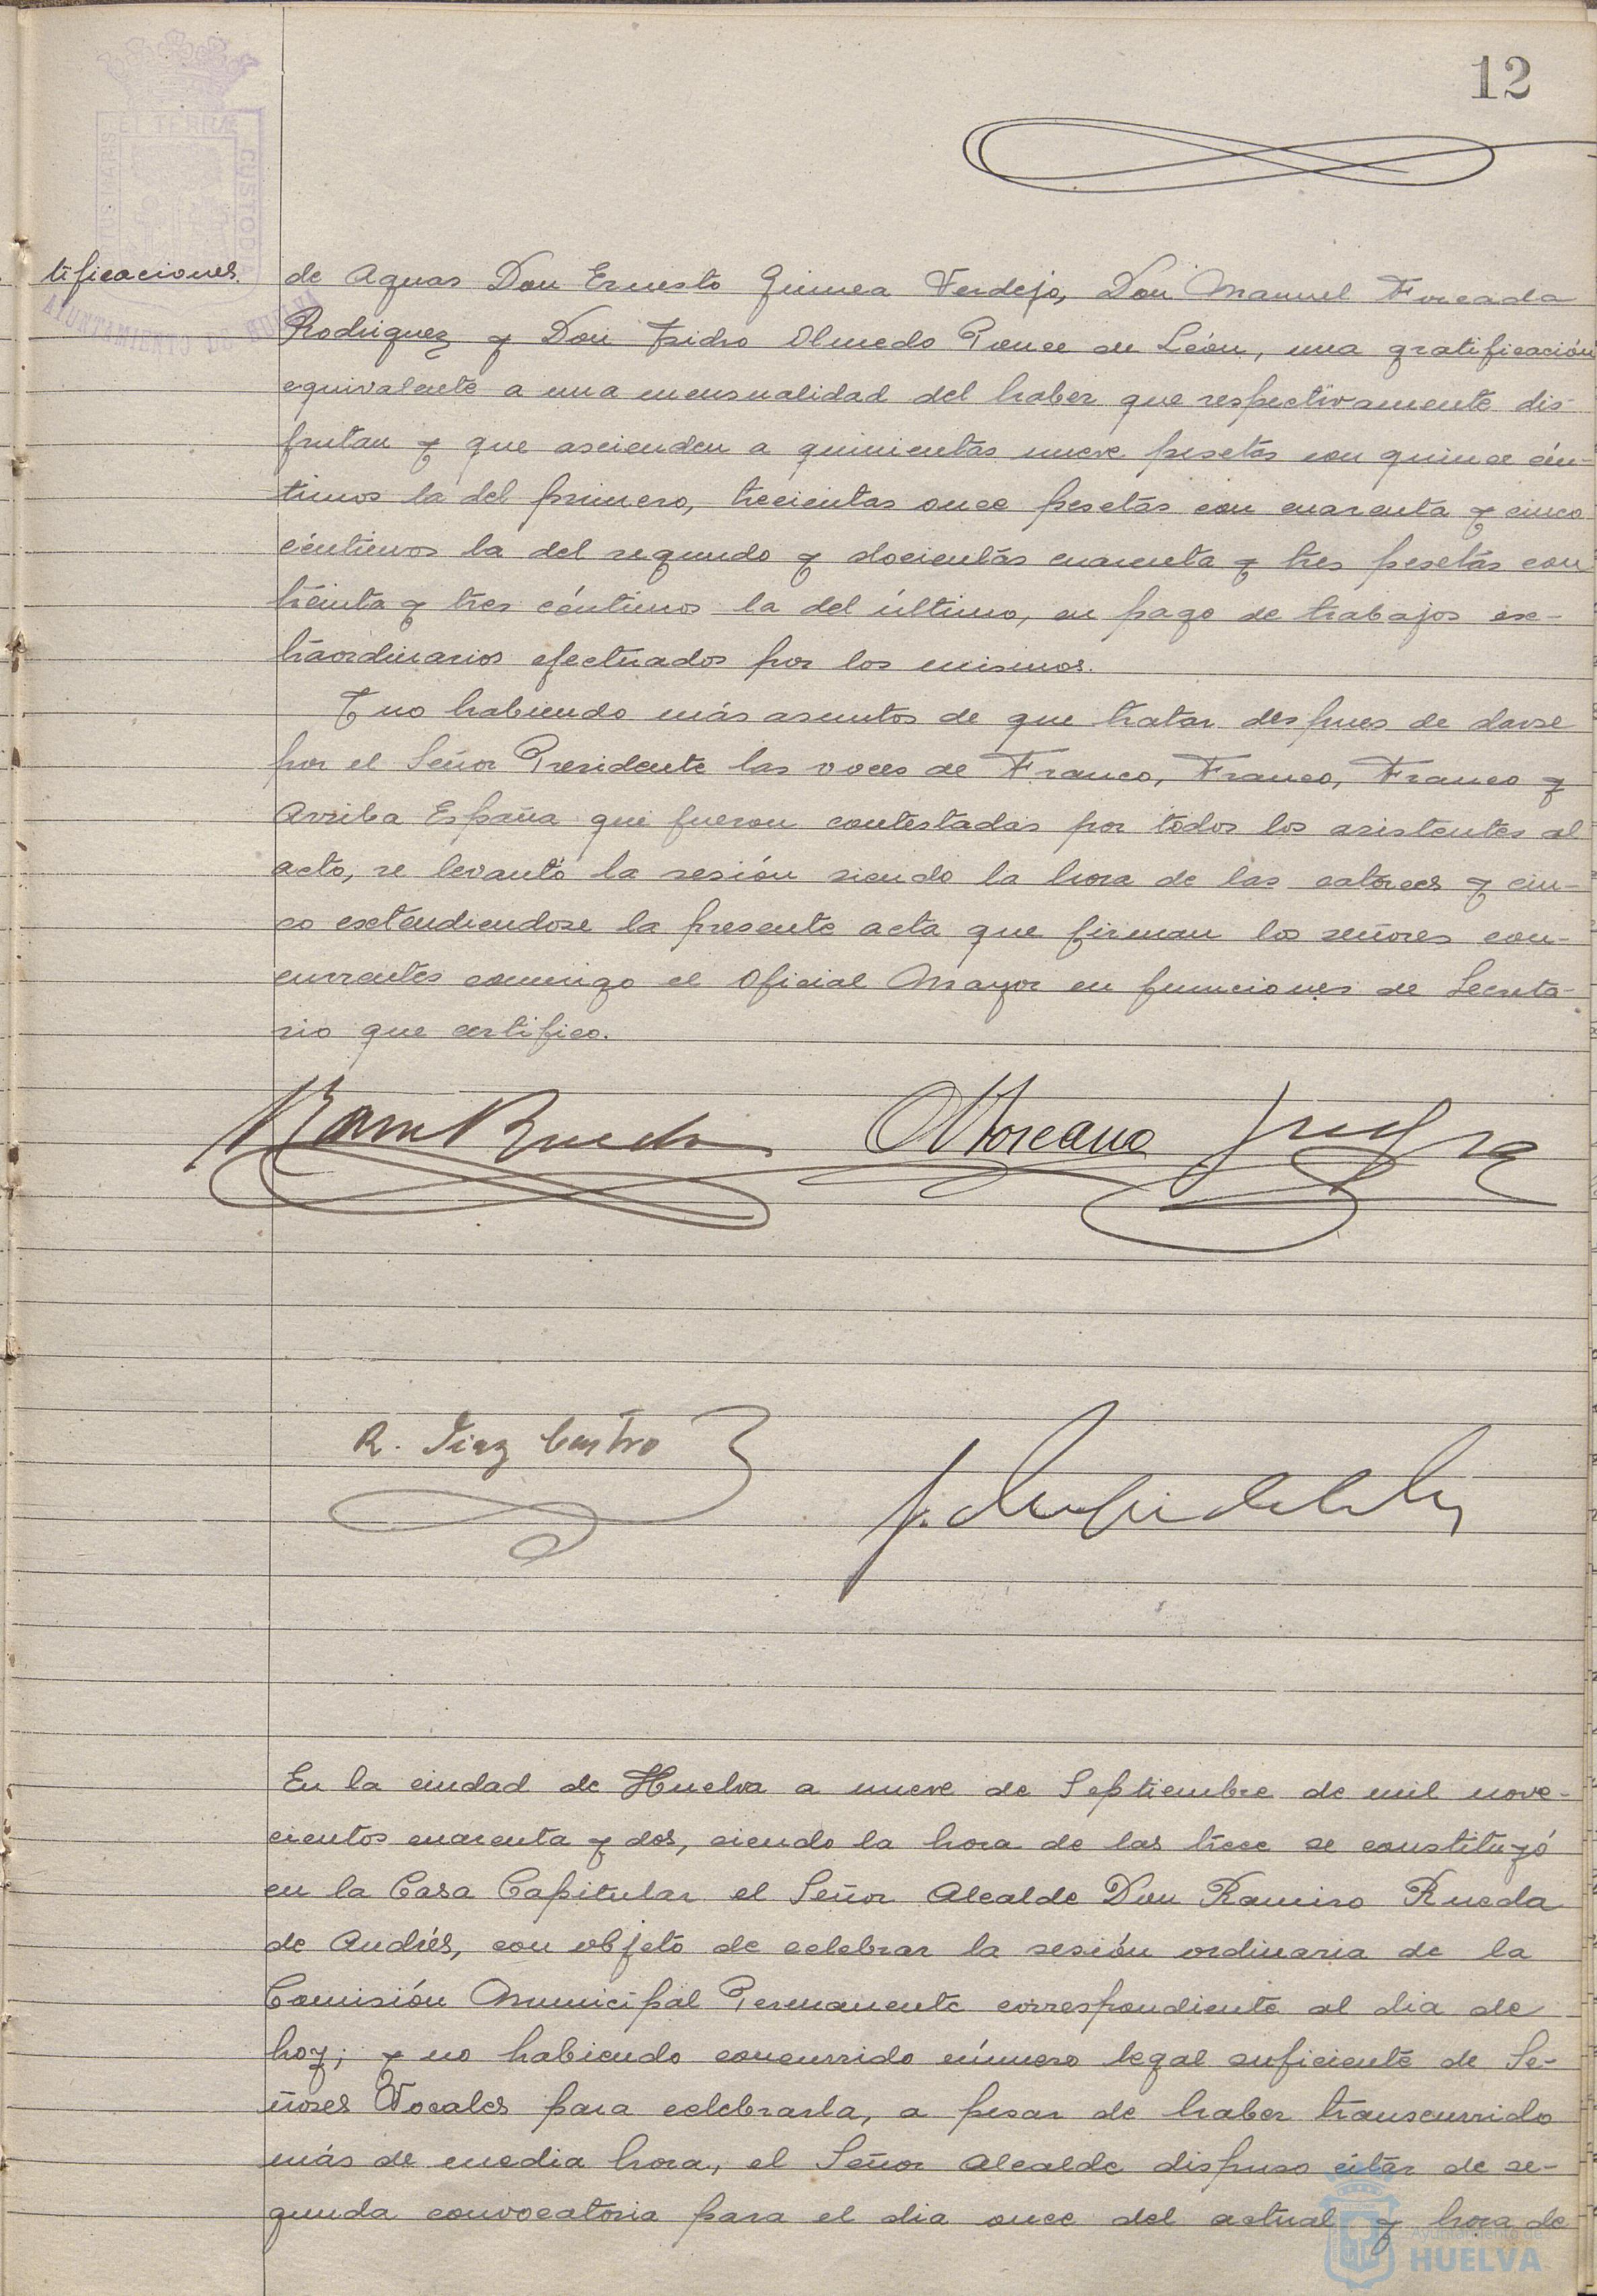 12
ET TERRÆ
CUSTOD
AYUNTAMIENTO DE HUELVA
tificaciones.
de Aguas Don Ernesto Guinea Verdejo, Don Manuel Forcada
Rodriguez y Don Isidro Olmedo Ponce de León, una gratificación
equivalente a una mensualidad del haber que respectivamente dis-
frutan y que ascienden a quinientas nueve pesetas con quince cén-
timos la del primero, trecientas once pesetas con cuarenta y cinco
céntimos la del segundo y docientas cuarenta y tres pesetas con
treinta y tres céntimos la del último, en pago de trabajos ex-
traordinarios efectuados por los mismos.
Y no habiendo más asuntos de que tratar despues de darse
por el Señor Presidente las voces de Franco, Franco, Franco y
Arriba España que fueron contestadas por todos los asistentes al
acto, se levantó la sesión siendo la hora de las catorces y cin-
co extendiendose la presente acta que firman los señores con-
currentes conmigo el Oficial Mayor en funciones de Secreta-
rio que certifico.
Ram Rueda
Moreano
R. Diaz Castro
En la ciudad de Huelva a nueve de Septiembre de mil nove-
cientos cuarenta y dos, siendo la hora de las trece se constituyó
en la Casa Capitular el Señor Alcalde Don Ramiro Rueda
de Andrés, con objeto de celebrar la sesión ordinaria de la
Comisión Municipal Permanente correspondiente al dia de
hoy; y no habiendo concurrido número legal suficiente de Se-
ñores Vocales para celebrarla, a pesar de haber transcurrido
más de media hora, el Señor Alcalde dispuso citar de se-
gunda convocatoria para el dia once del actual y hora de
Ayuntamiento de
HUELVA